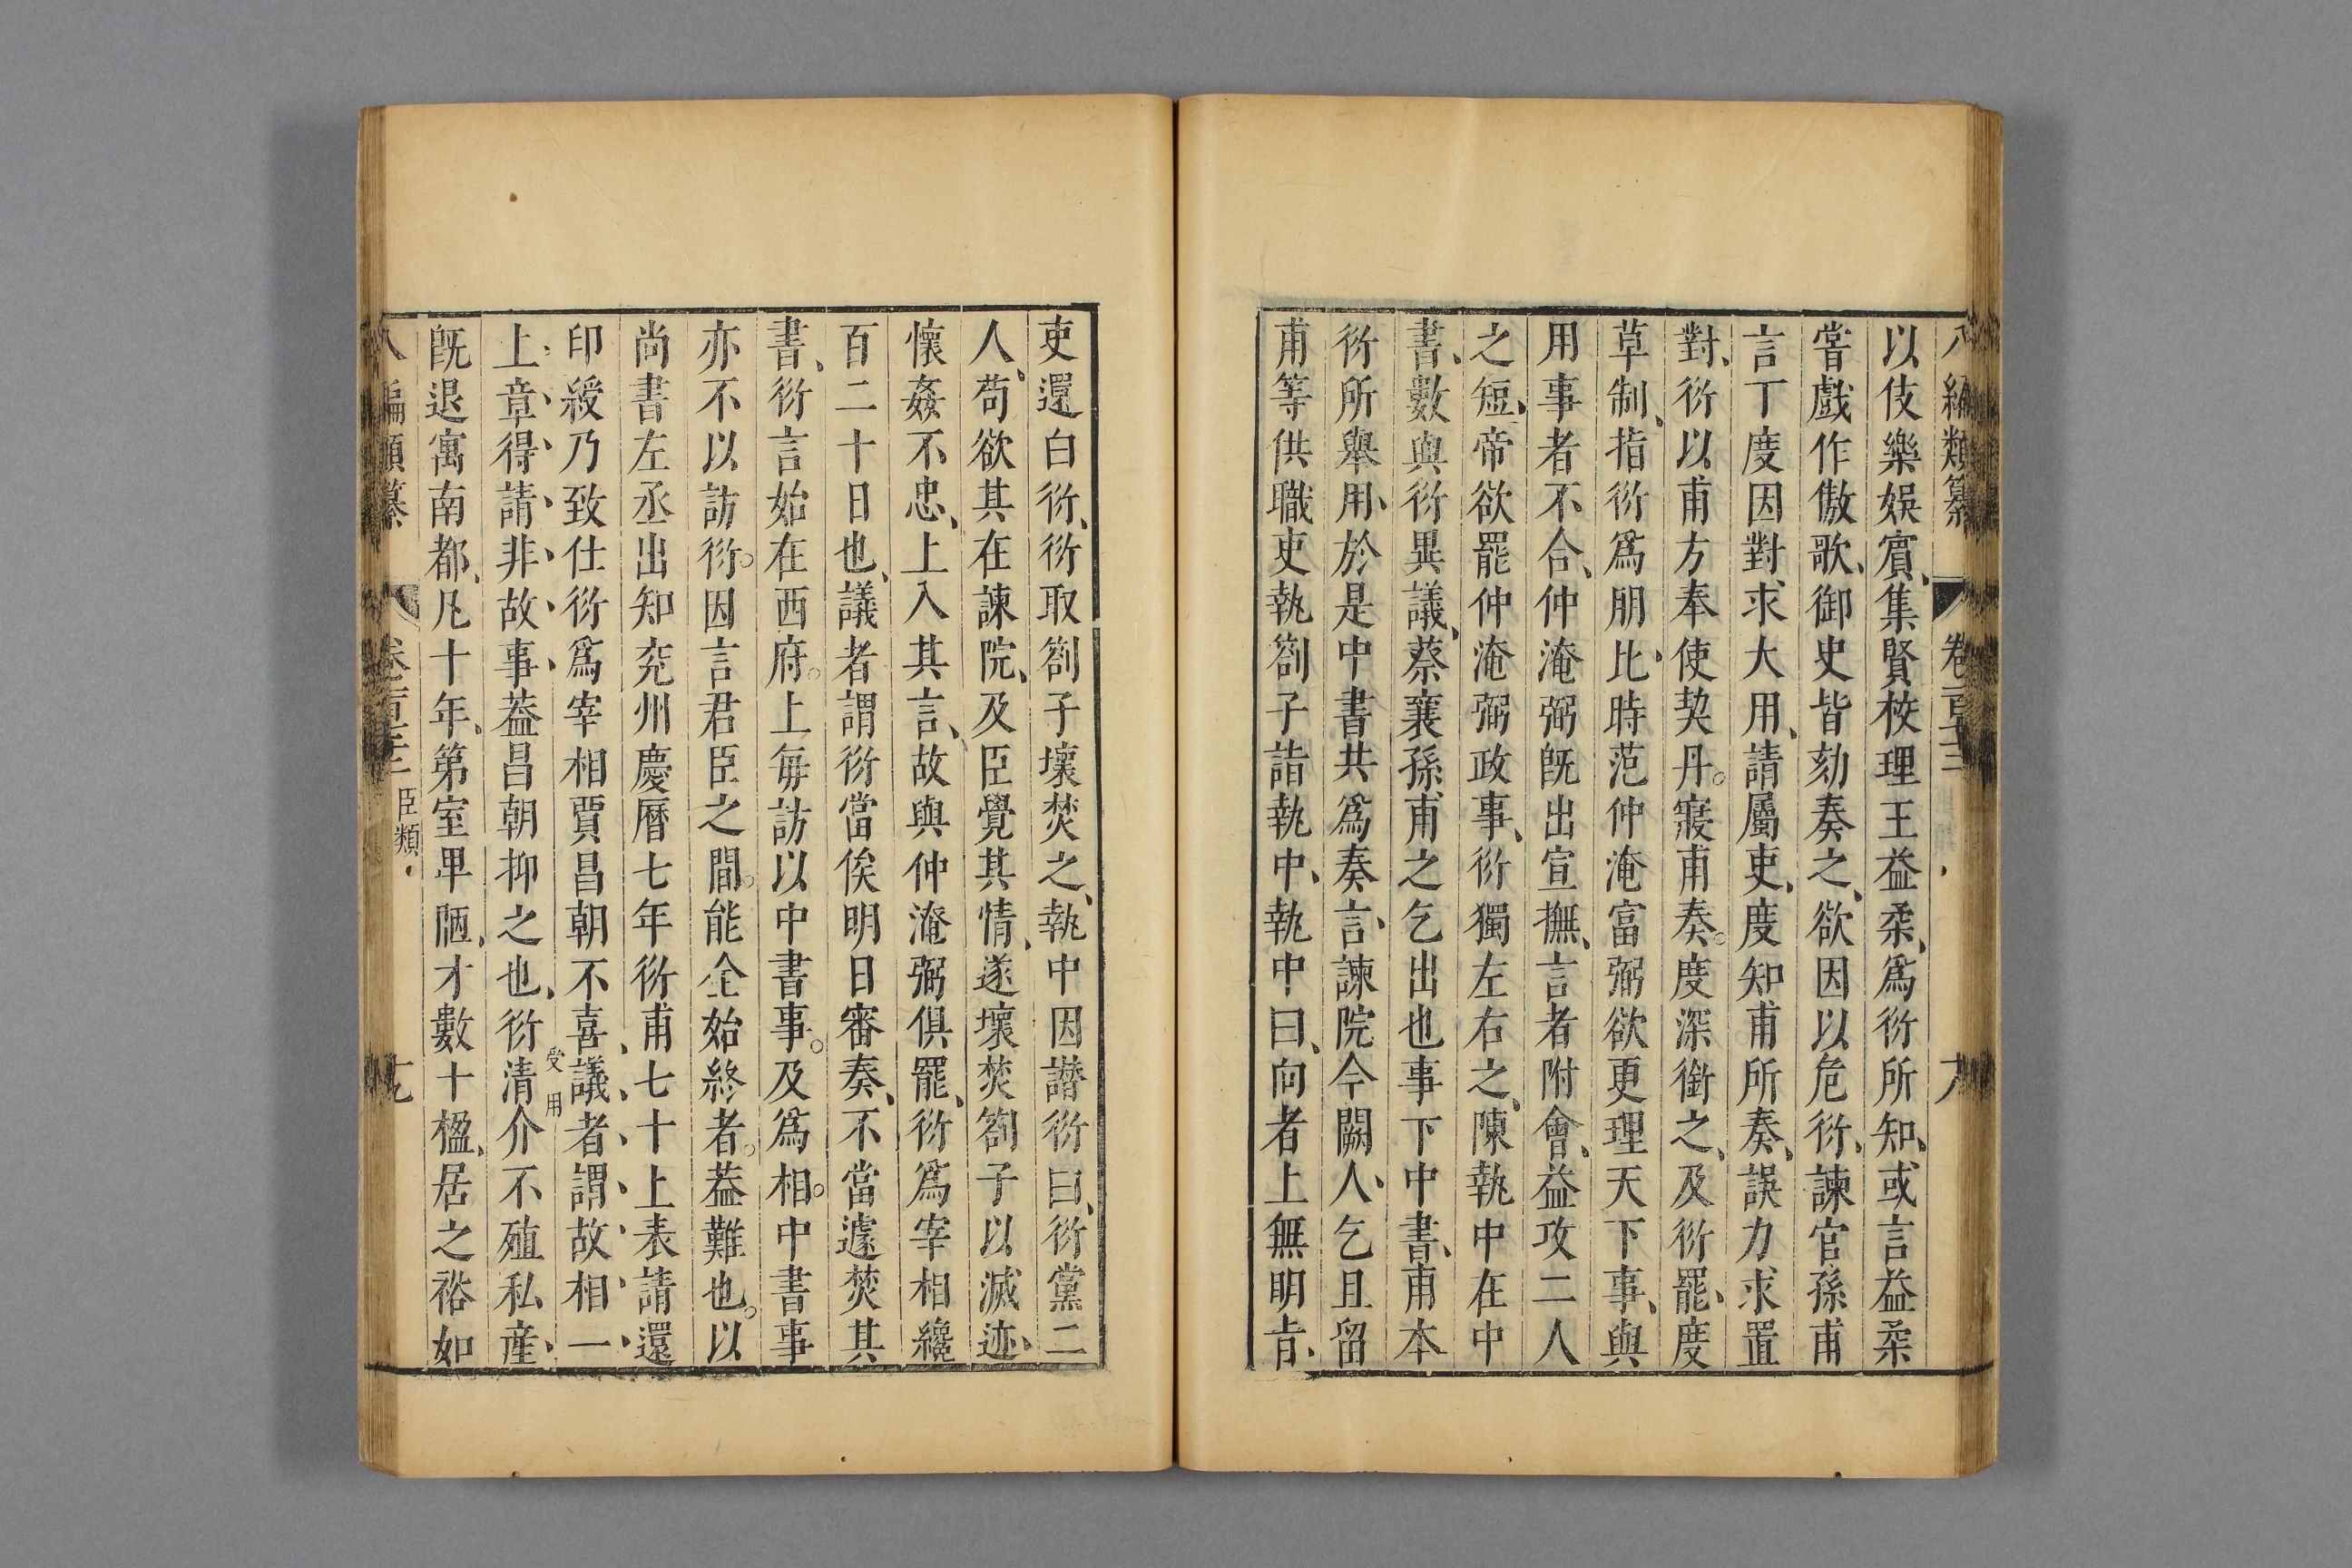 八編類纂 卷一百十三 十八
以伎樂娛賓、集賢校理王益柔、爲衍所知、或言益柔
嘗戲作傲歌、御史皆劾奏之、欲因以危衍、諫官孫甫
言丁度因對求大用、請屬吏、度知甫所奏、誤力求置
對、衍以甫方奉使契丹。寢甫奏。度深銜之、及衍罷、度
草制、指衍爲朋比、時范仲淹富弼欲更理天下事、與
用事者不合、仲淹弼旣出宣撫、言者附會、益攻二人
之短、帝欲罷仲淹弼政事、衍獨左右之、陳執中在中
書、數與衍異議、蔡襄孫甫之乞出也事下中書、甫本
衍所舉用、於是中書共爲奏言、諫院今闕人、乞且留
甫等供職吏執劄子詣執中、執中曰、向者上無明㫖、
吏還白衍、衍取劄子壞焚之、執中因譖衍曰、衍黨二
人、苟欲其在諫院、及臣覺其情、遂壞焚劄子以滅迹、
懷姦不忠、上入其言、故與仲淹弼俱罷、衍爲宰相纔
百二十日也、議者謂衍當俟明日審奏、不當遽焚其
書、衍言始在西府。上每訪以中書事。及爲相。中書事
亦不以訪衍。因言君臣之間。能全始終者。葢難也。以
尚書左丞出知兖州慶曆七年衍甫七十上表請還
印綬乃致仕衍爲宰相賈昌朝不喜、議、者、謂、故、相、一、
上、章、得、請、非、故、事、葢昌朝抑之也、衍清介不殖私產、
受用
旣退寓南都、凡十年、第室卑陋、才數十楹、居之裕如
八編類纂 卷一百十三 臣類 十九